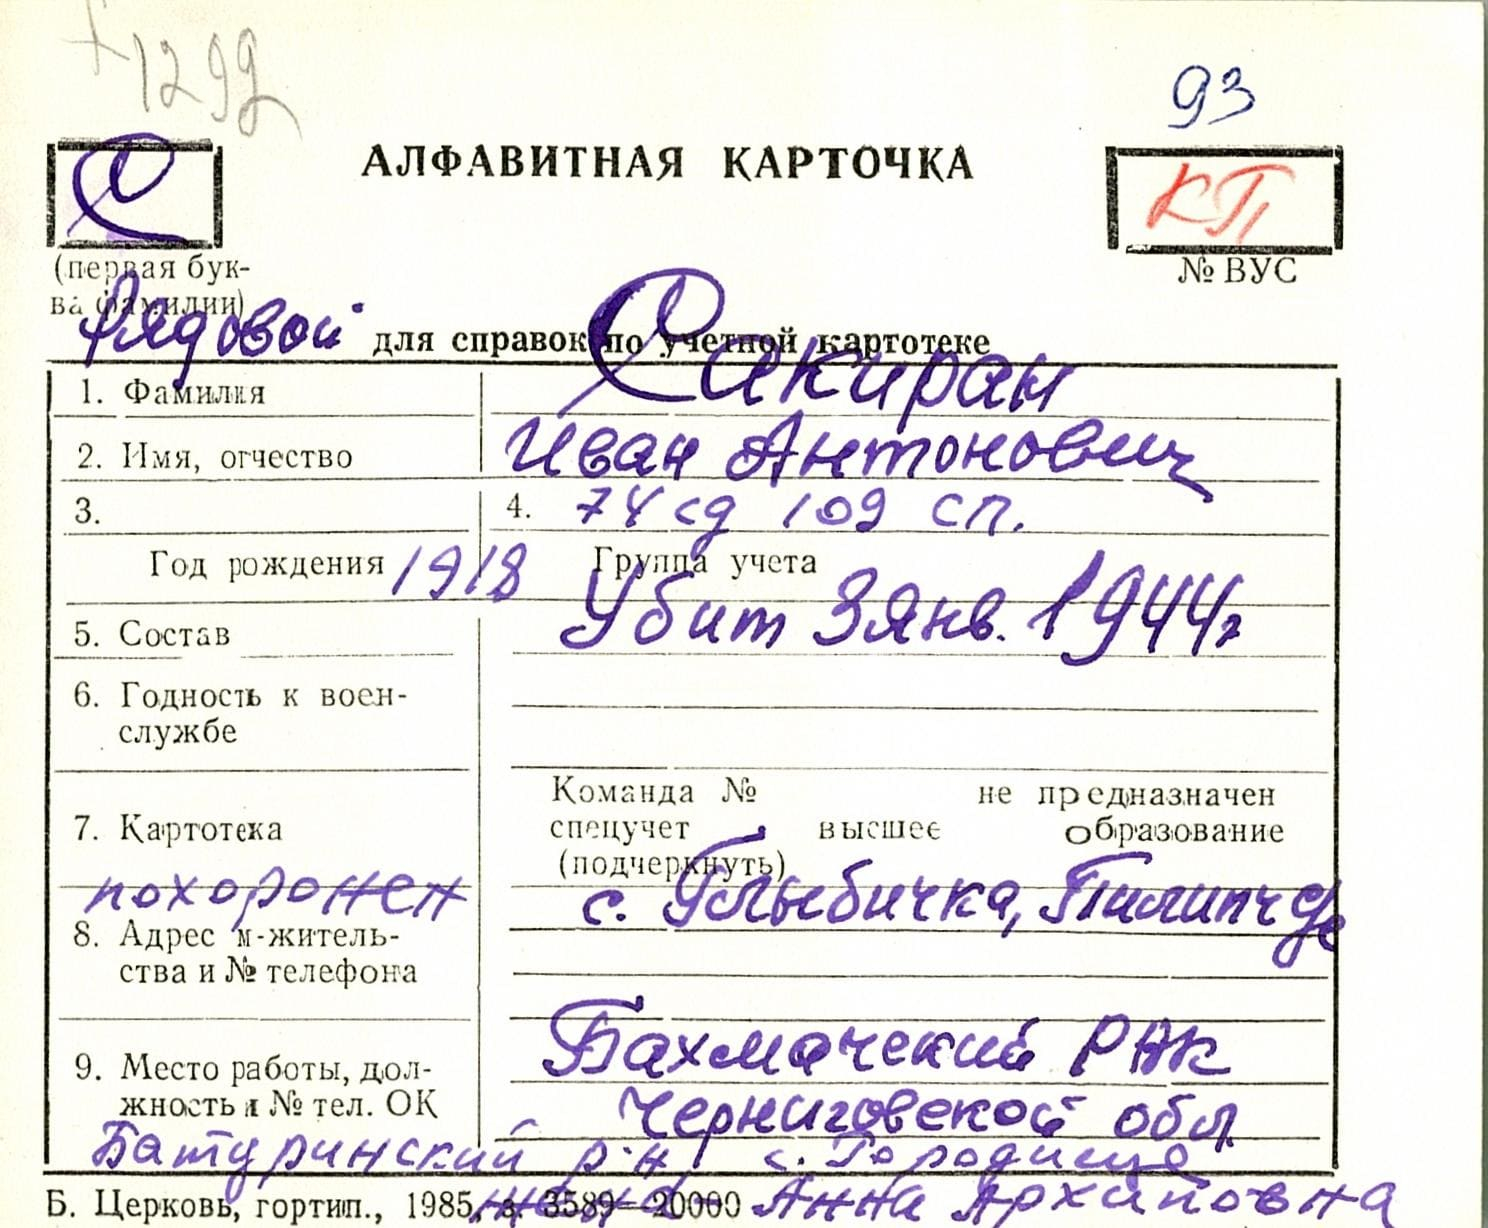 1292
93
С
АЛФАВИТНАЯ КАРТОЧКА
КП
(первая бук-
ва фамилии)
№ ВУС
Рядовой для справок по учетной картотеке
1. Фамилия Сакиран
2. Имя, отчество Иван Антонович
3. 4. 74 сд 109 сп.
Год рождения 1918 Группа учета
Убит 3 янв. 1944 г
5. Состав
6. Годность к воен-
службе
Команда № не предназначен
7. Картотека спецучет высшее образование
(подчеркнуть)
похоронен с. Глыбичка,
8. Адрес м-житель-
ства и № телефона
Бахмачский РВК
9. Место работы, дол-
жность и № тел. ОК
Черниговской обл.
Батуринский р-н с. Городище
Б. Церковь, гортип., 1985, з. 3589—20000
жена Анна Архиповна